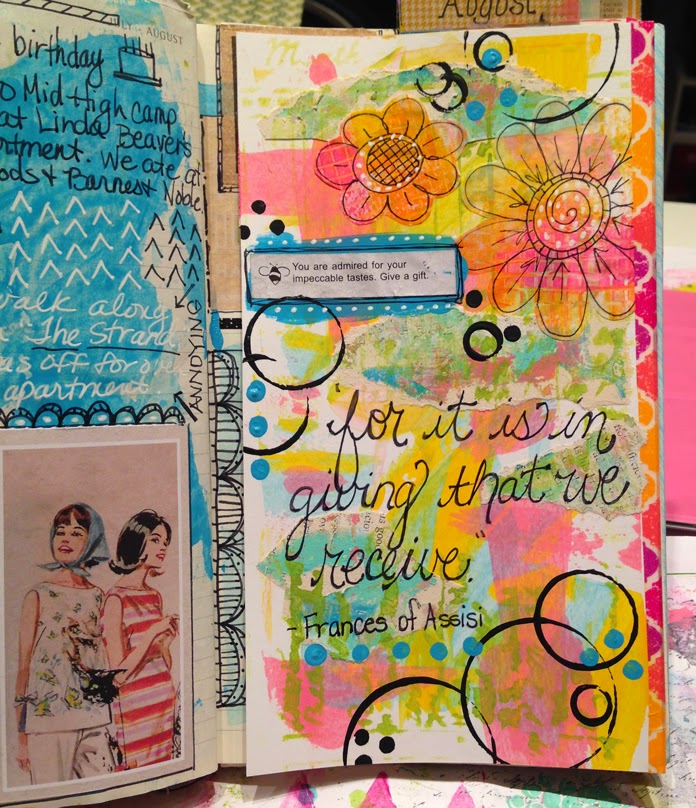 August
AUGUST
birthday
Mid-High camp
at Linda Beaver's
rtment. We ate at
ods & Barnes & Noble
walk along
The Strand
was off for
apartment
ANNOYING
You are admired for your
impeccable tastes. Give a gift.
"for it is in
giving that we
receive."
- Frances of Assisi